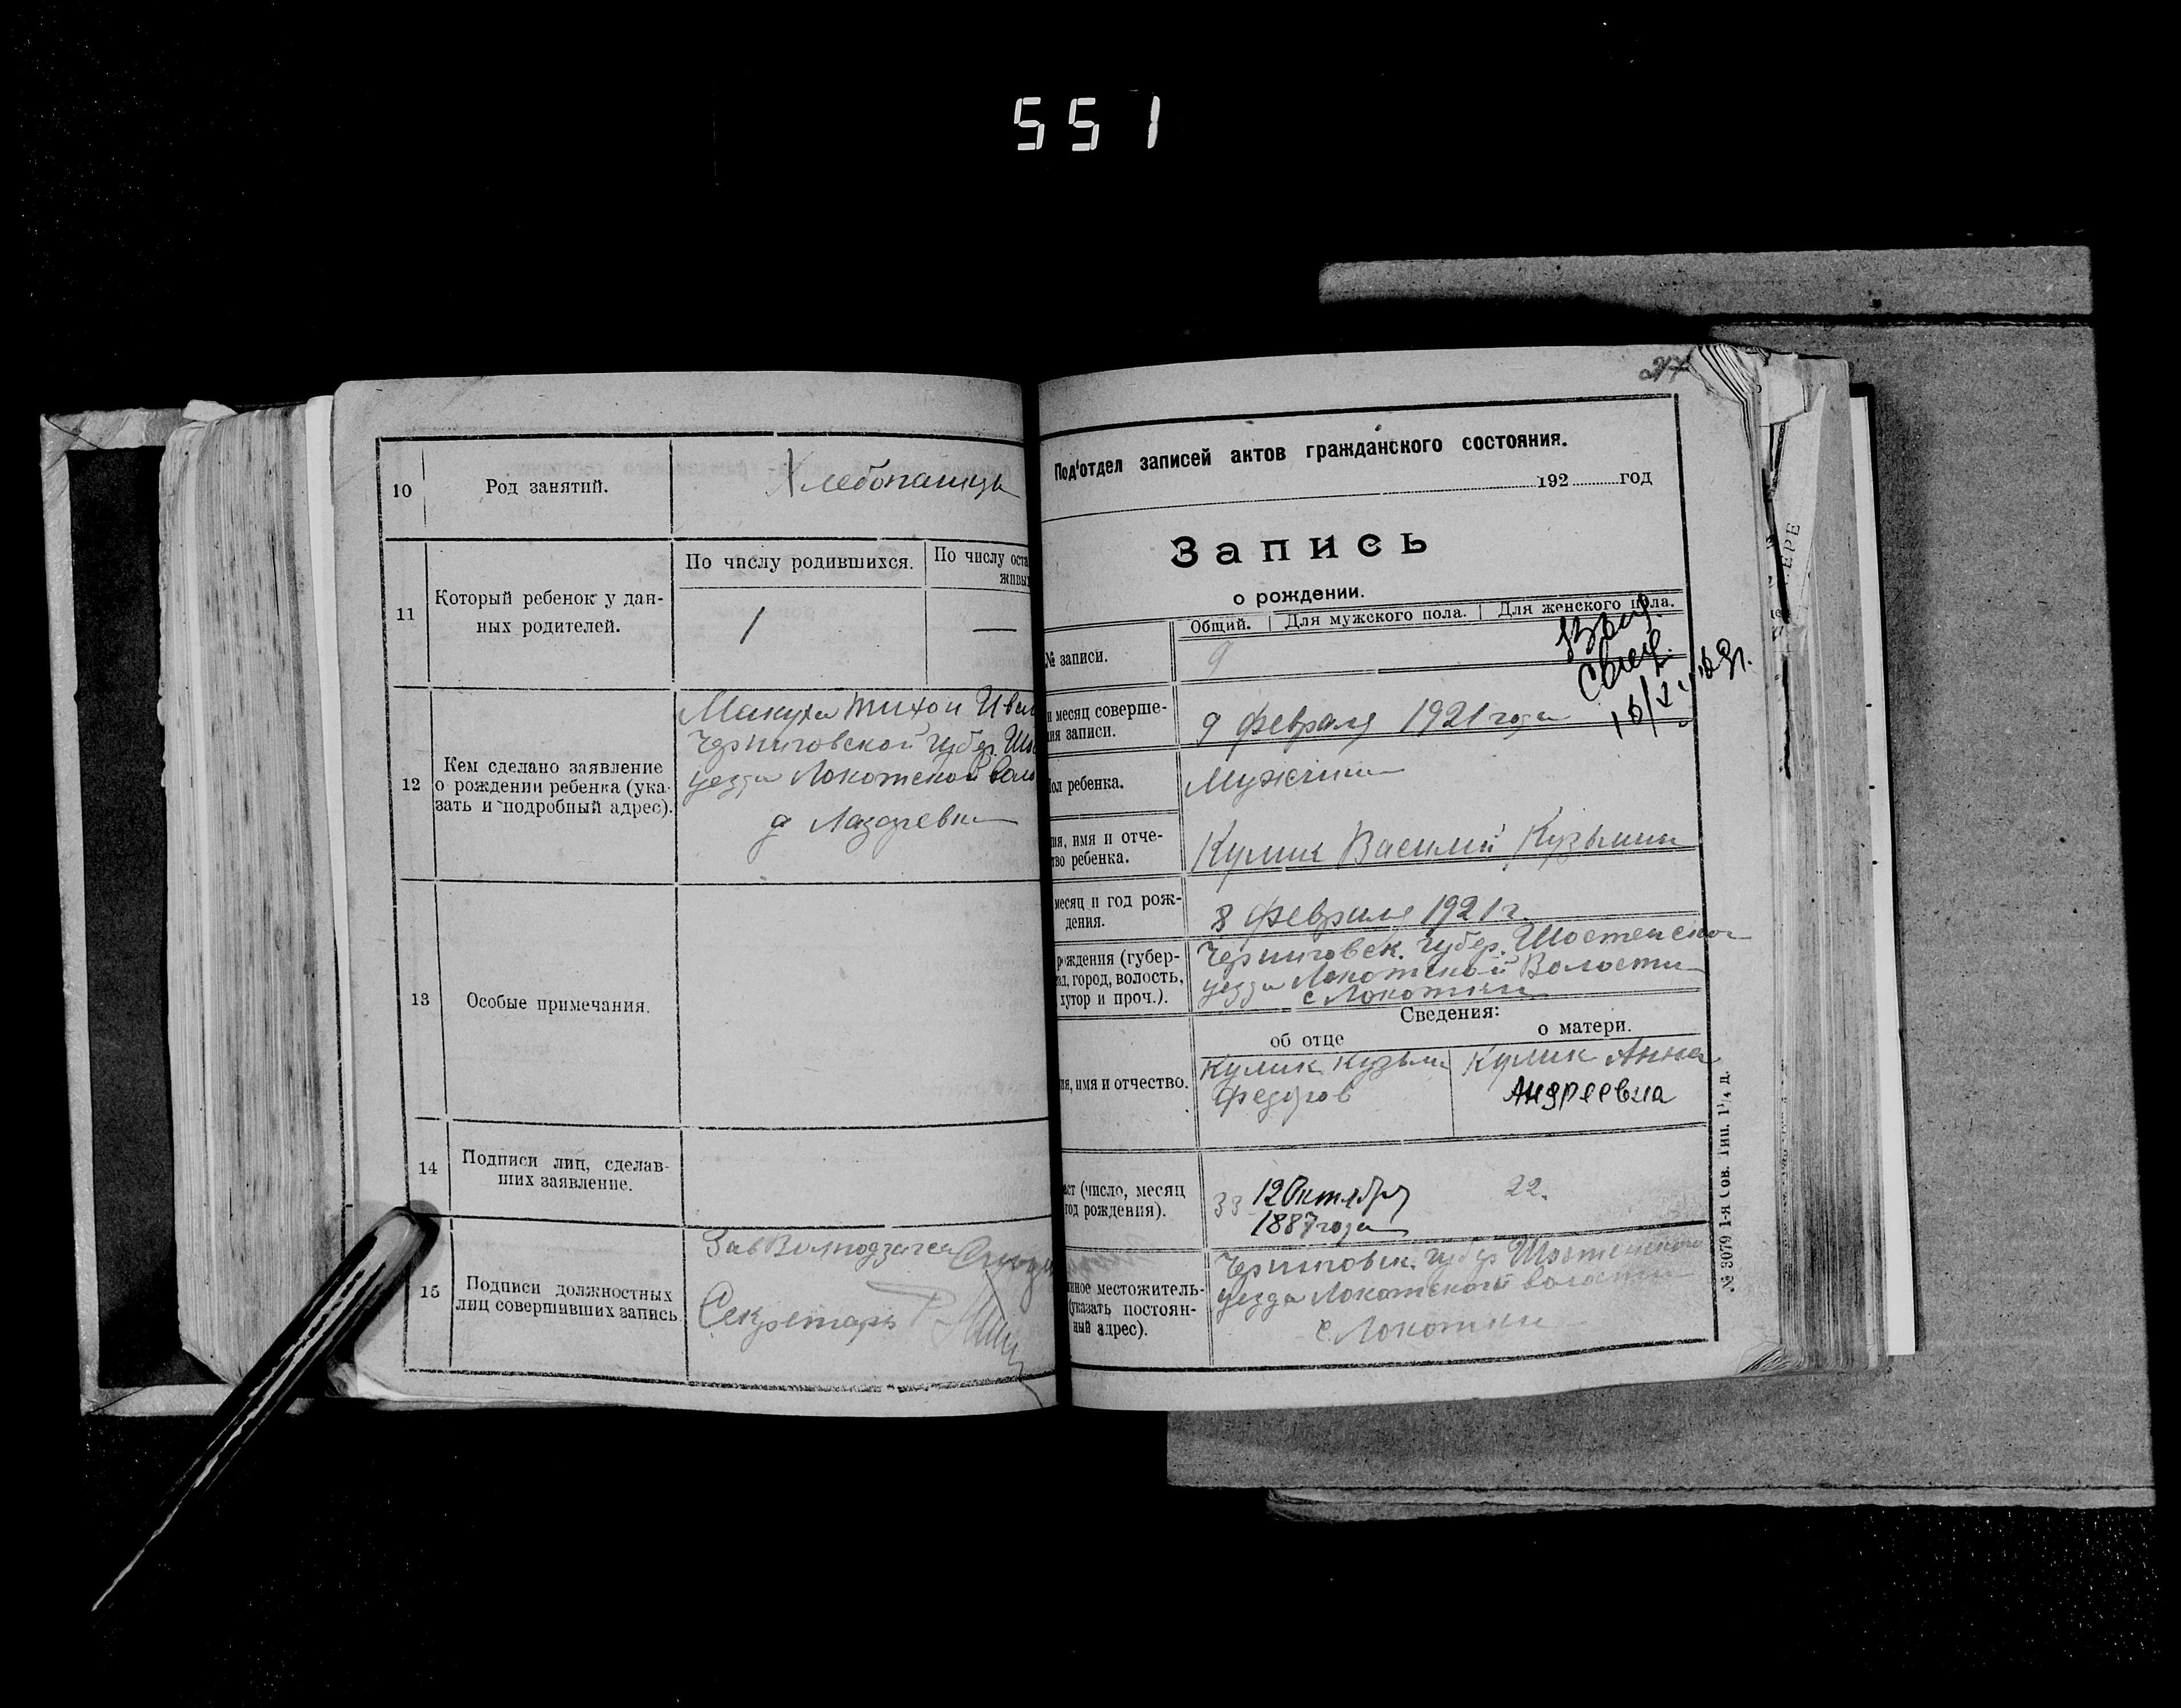 551
10
Род занятий.
Хлебопашцы
11
Который ребенок у дан-
ных родителей.
По числу родившихся.
По числу оста
живых
1
—
12
Кем сделано заявление
о рождении ребенка (ука-
зать и подробный адрес).
Макуха Тихон Иван
Черниговской губер. Шос
уезда Локотской воло
д Лазаревка
13
Особые примечания.
14
Подписи лиц, сделав-
ших заявление.
15
Подписи должностных
лиц совершивших запись
Секретарь
27
Под'отдел записей актов гражданского состояния.
192 год
Запись
о рождении.
Общий. Для мужского пола. Для женского пола.
№ записи.
9
и месяц соверше-
ния записи.
9 февраля 1921 года
Пол ребенка.
Мужчина
ия, имя и отче-
тво ребенка.
Кулик Василий Кузьмин
месяц и год рож-
дения.
8 февраля 1921 г.
рождения (губер-
зд, город, волость,
хутор и проч.).
Черниговск. губер. Шостенског
уезда Локотской Волости
с Локотки
Сведения:
об отце
о матери.
ия, имя и отчество.
Кулик Кузьма
Федоров
Кулик Анна
Андреевна
аст (число, месяц
год рождения).
33 12 Октября
1887 года
22.
нное местожитель-
(указать постоян-
ный адрес).
Черниговск. губер Шостенского
уезда Локотской волости
с. Локотки
№ 3079 1-я Сов. Тип. 1¼ д.